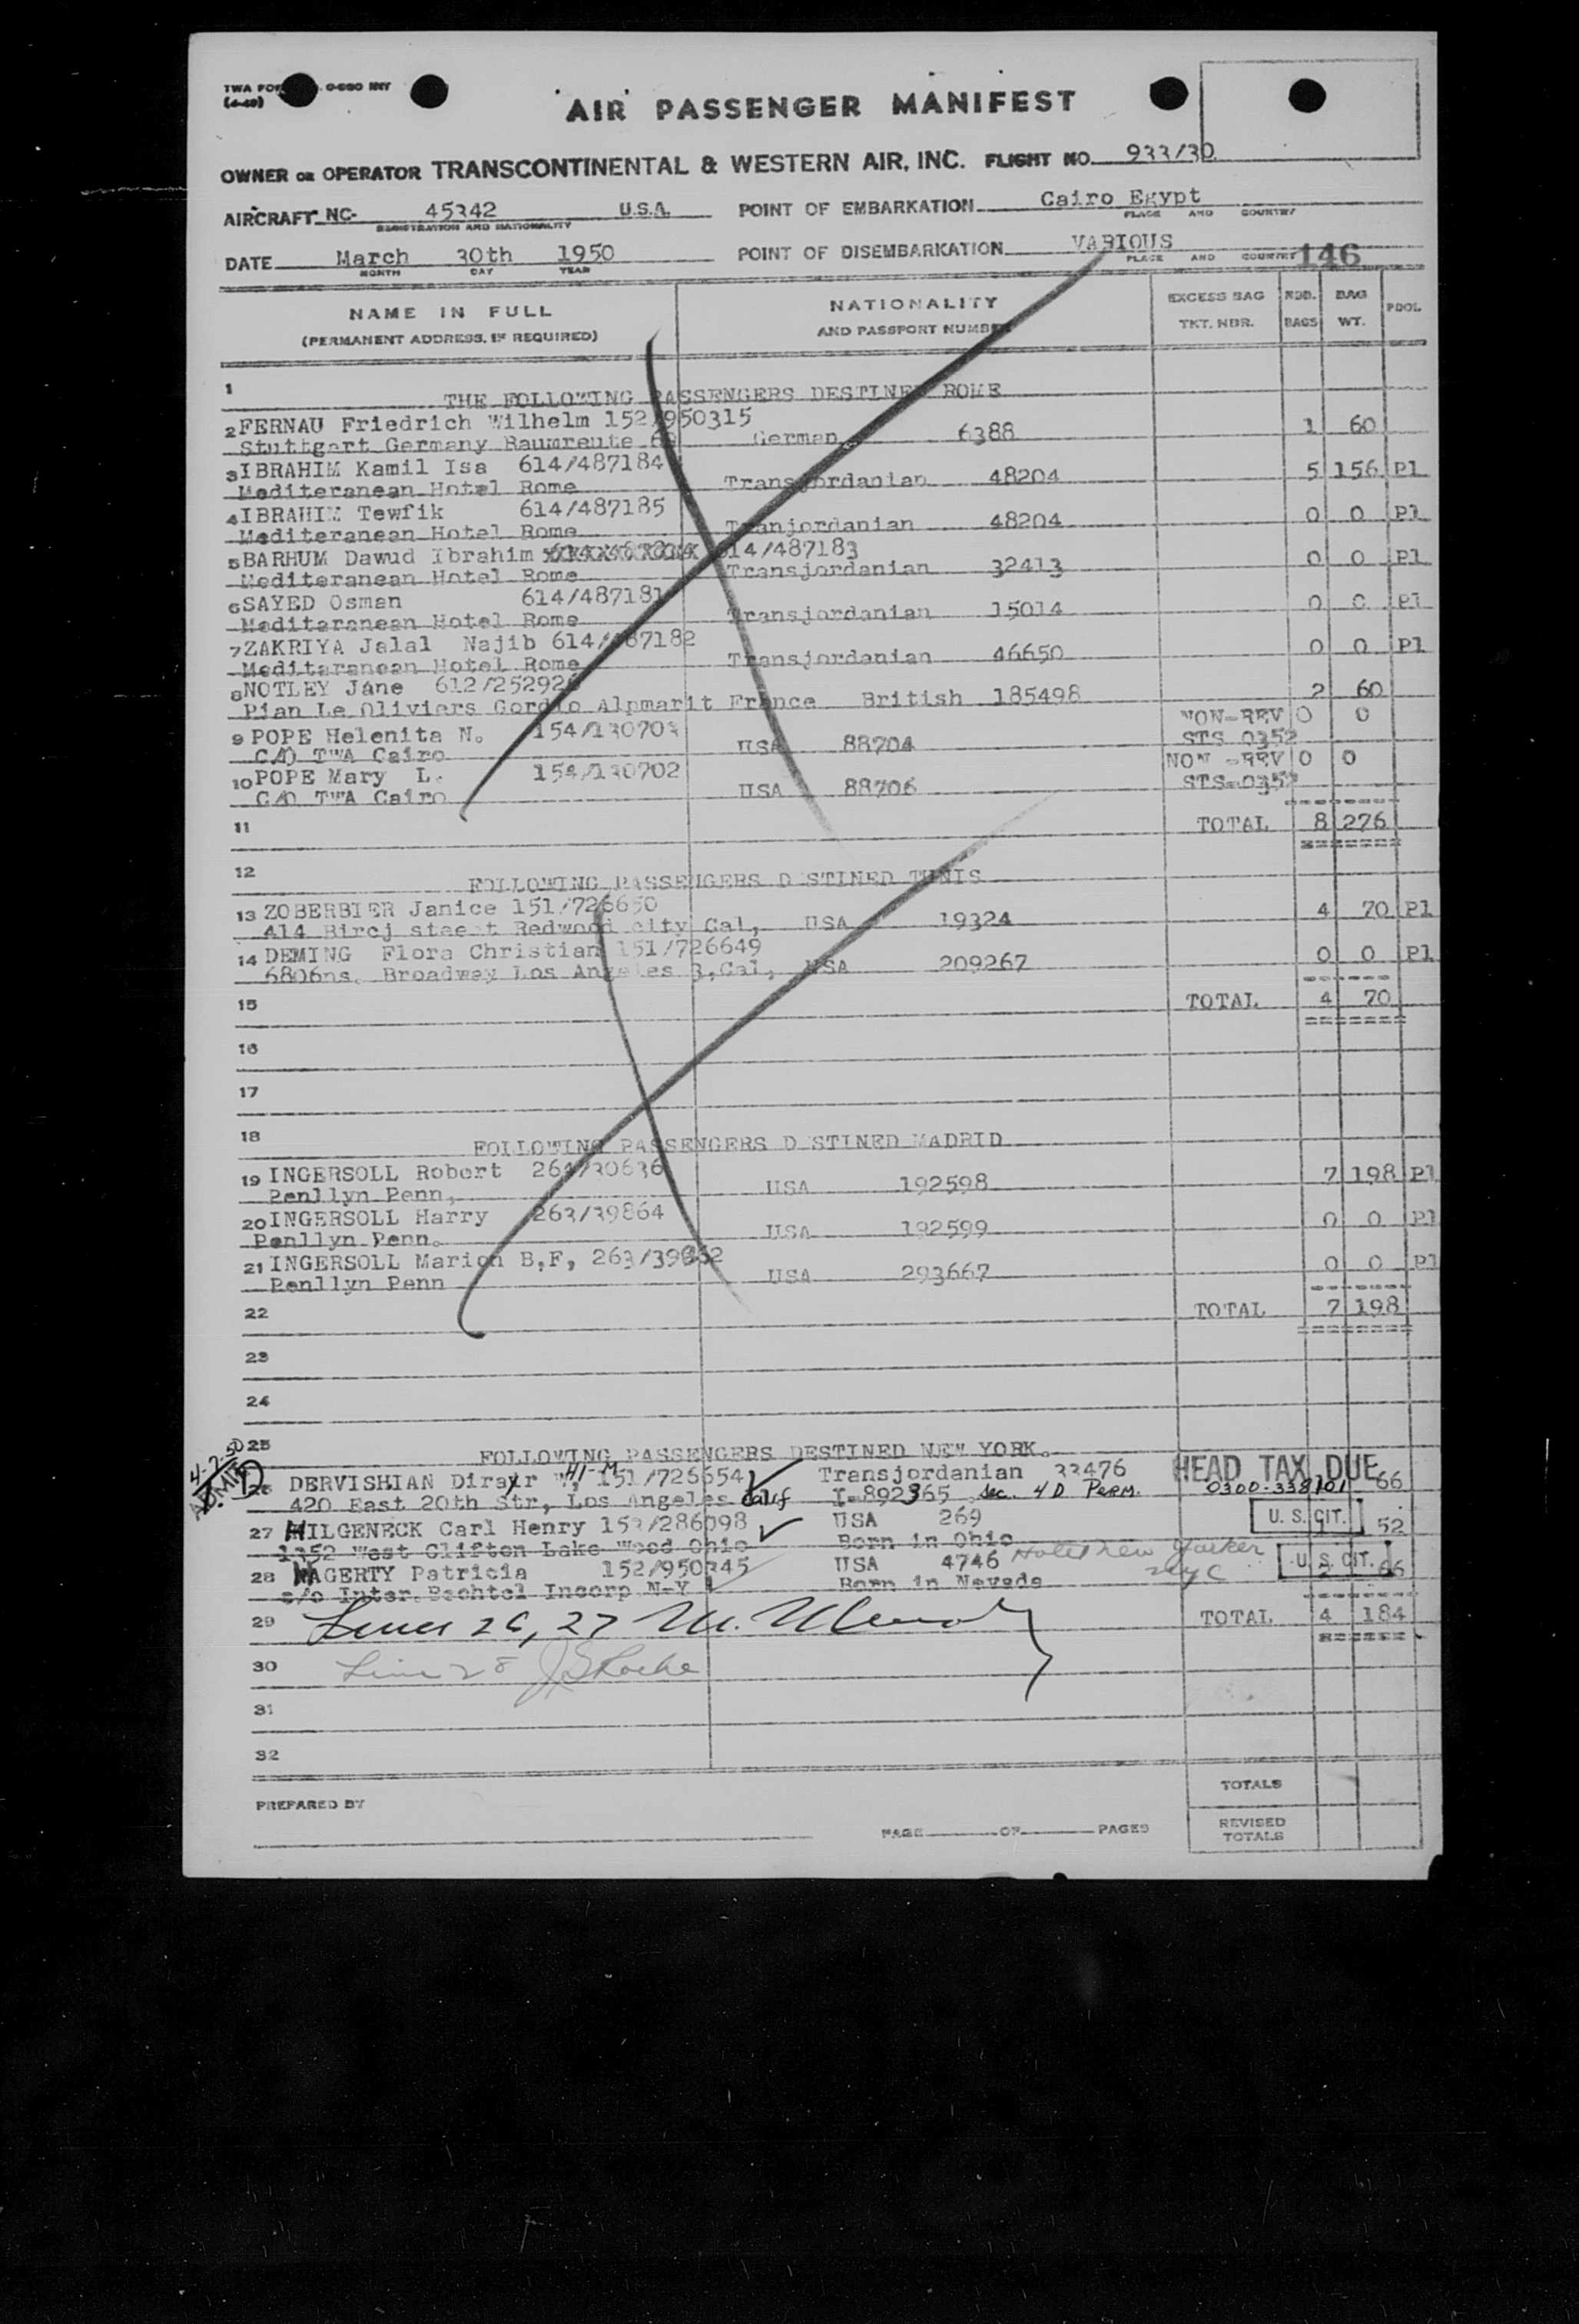 TWA FOR 0-660 NNY
(4-49)
AIR PASSENGER MANIFEST
OWNER OR OPERATOR TRANSCONTINENTAL & WESTERN AIR, INC. FLIGHT NO. 933/30
AIRCRAFT NC- 45342 U.S.A. POINT OF EMBARKATION Cairo Egypt
REGISTRATION AND NATIONALITY PLACE AND COUNTRY
DATE March 30th 1950 POINT OF DISEMBARKATION VARIOUS
MONTH DAY YEAR PLACE AND COUNTRY 146
NAME IN FULL NATIONALITY EXCESS BAG NBR. BAG POOL
(PERMANENT ADDRESS, IF REQUIRED) AND PASSPORT NUMBER TKT. NBR. BAGS WT.
1 THE FOLLOWING PASSENGERS DESTINED ROME
2 FERNAU Friedrich Wilhelm 152/950315
Stuttgart Germany Baumreute German 6388 1 60
3 IBRAHIM Kamil Isa 614/487184
Mediteranean Hotel Rome Transjordanian 48204 5 156 Pl
4 IBRAHIM Tewfik 614/487185
Mediteranean Hotel Rome Tranjordanian 48204 0 0 Pl
5 BARHUM Dawud Ibrahim 614/487183
Mediteranean Hotel Rome Transjordanian 32413 0 0 Pl
6 SAYED Osman 614/487181
Mediteranean Hotel Rome Transjordanian 15014 0 0 Pl
7 ZAKRIYA Jalal Najib 614/487182
Mediteranean Hotel Rome Transjordanian 46650 0 0 Pl
8 NOTLEY Jane 612/252926
Pian Le Oliviers Gordio Alpmarit France British 185498 2 60
9 POPE Helenita N. 154/130703 NON-REV 0 0
C/O TWA Cairo USA 88704 STS 0352
10 POPE Mary L. 154/130702 NON -REV 0 0
C/O TWA Cairo USA 88706 STS-0352
11 TOTAL 8 276
12 FOLLOWING PASSENGERS D STINED TUNIS
13 ZOBERBIER Janice 151/726650
414 Bircj staet Redwood city Cal, USA 19324 4 70 Pl
14 DEMING Flora Christian 151/726649
6806ns. Broadway Los Angeles 3, Cal, USA 209267 0 0 Pl
15 TOTAL 4 70
16
17
18 FOLLOWING PASSENGERS D STINED MADRID
19 INGERSOLL Robert 264/30636
Penllyn Penn, USA 192598 7 198 Pl
20 INGERSOLL Harry 263/39864
Penllyn Penn. USA 192599 0 0 Pl
21 INGERSOLL Marion B,F, 263/39862
Penllyn Penn USA 293667 0 0 Pl
22 TOTAL 7 198
23
24
25 FOLLOWING PASSENGERS DESTINED NEW YORK.
4-2-50 ADMITTED
26 DERVISHIAN Dirayr 41-M 151/726654 Transjordanian 33476 HEAD TAX DUE
420 East 20th Str, Los Angeles Calif I-892365 Sec. 4 D Perm. 0300-338101 66
27 HILGENECK Carl Henry 153/286098 USA 269 U. S. CIT. 52
1352 West Clifton Lake Wood Ohio Born in Ohio
28 HAGERTY Patricia 152/950345 USA 4746 Hotel New Yorker NYC U. S. CIT. 66
c/o Inter.Bechtel Incorp N-Y Born in Nevada
29 Lines 26, 27 TOTAL 4 184
30 Line 28 J S Roche
31
32
TOTALS
PREPARED BY
PAGE OF PAGES
REVISED
TOTALS